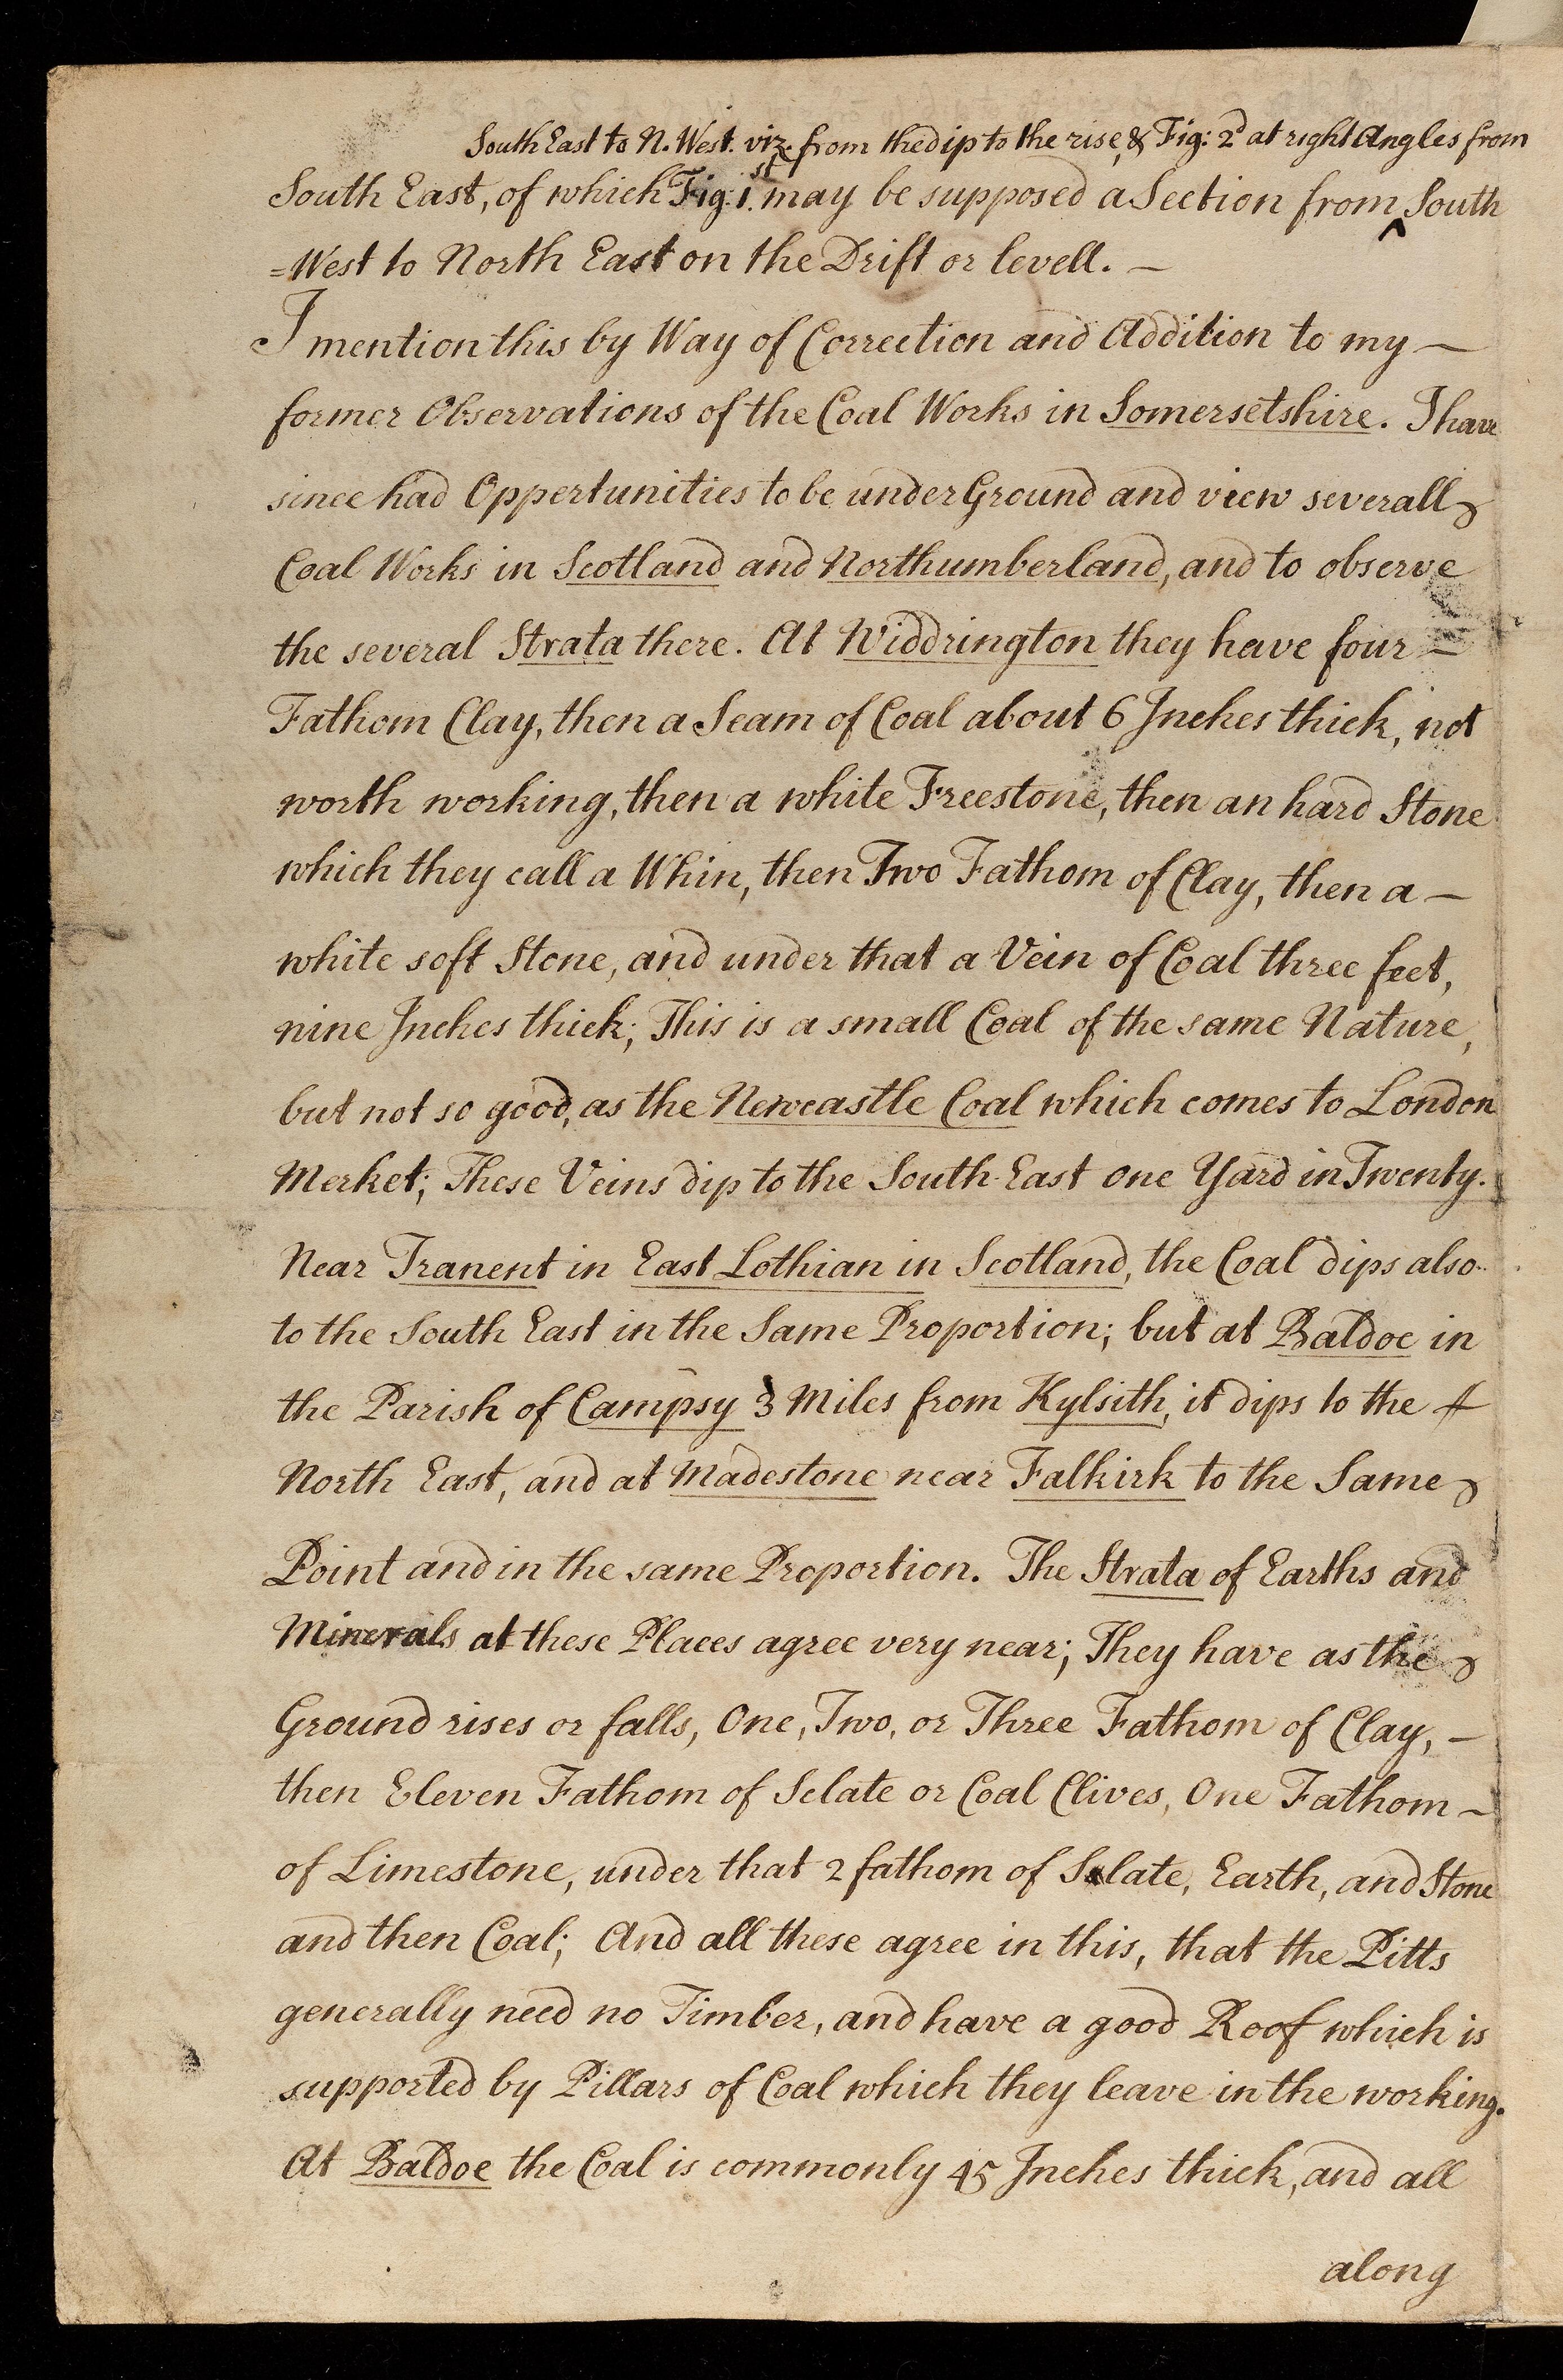 South East to N. West. viz. from the dip to the rise, & Fig: 2d at right Angles from
South East, of which Fig: 1.st may be supposed a Section from ‸ South
=West to North East on the Drift or levell. —
I mention this by Way of Correction and Addition to my —
former Observations of the Coal Works in Somersetshire. I have
since had Oppertunities to be under Ground and view severall
Coal Works in Scotland and Northumberland, and to observe
the several Strata there. At Widdrington they have four —
Fathom Clay, then a Seam of Coal about 6 Inches thick, not
worth working, then a white Freestone, then an hard Stone
which they call a Whin, then Two Fathom of Clay, then a —
white soft Stone, and under that a Vein of Coal three feet,
nine Inches thick; This is a small Coal of the same Nature,
but not so good, as the Newcastle Coal which comes to London
Merket; These Veins dip to the South East one Yard in Twenty.
Near Tranent in East Lothian in Scotland, the Coal dips also
to the South East in the Same Proportion; but at Baldoe in
the Parish of Campsy 3 Miles from Kylsith, it dips to the
North East, and at Madestone near Falkirk to the Same
Point and in the same Proportion. The Strata of Earths and
Minerals at these Places agree very near; They have as the
Ground rises or falls, One, Two, or Three Fathom of Clay, —
then Eleven Fathom of Sclate or Coal Clives, One Fathom —
of Limestone, under that 2 fathom of Sclate, Earth, and Stone
and then Coal; And all these agree in this, that the Pitts
generally need no Timber, and have a good Roof which is
supported by Pillars of Coal which they leave in the working.
At Baldoe the Coal is commonly 45 Inches thick, and all
along